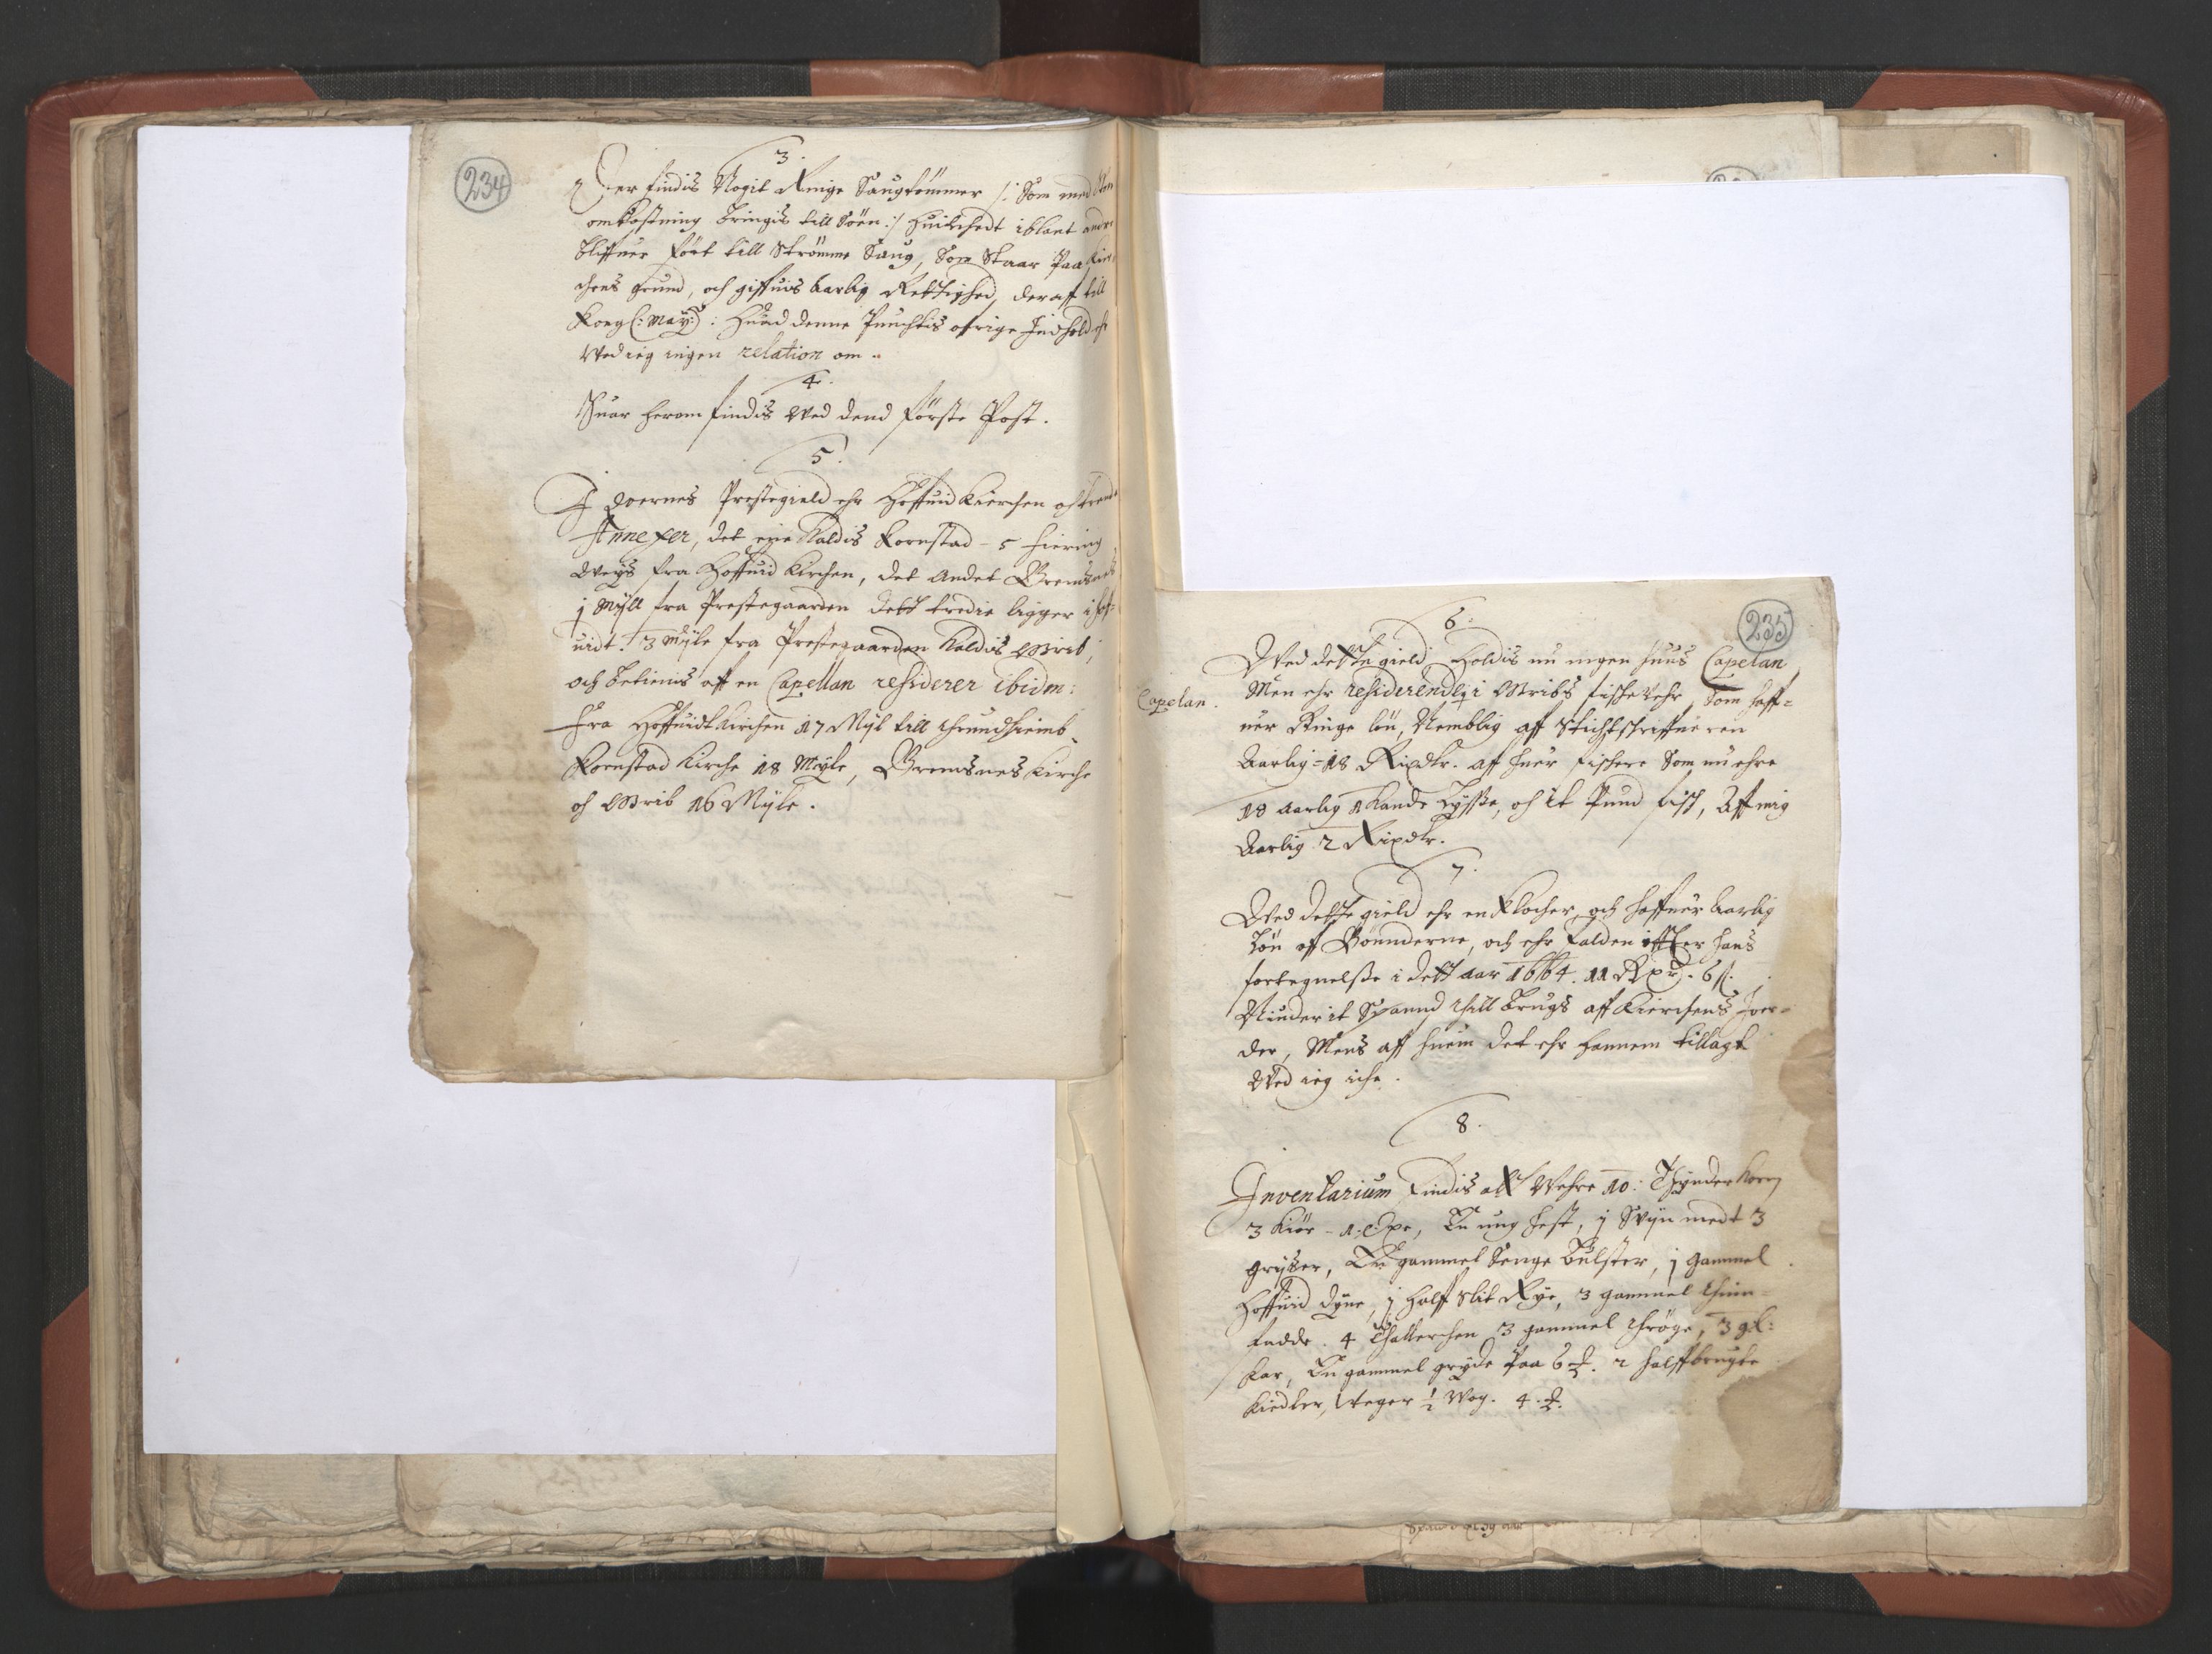 234
3.
Der findis Nogit Ringe Saugtømmer /: Som med Stor
omkostning bringis till Søen :/ Huilchedt iblant andre
bliffuer ført till Strømme Saug, Som Staar paa Kir-
chens grund, och giffuis aarlig Rettighed, deraff till
Kongl: May: : Huad denne Punchtis ofrige Indhold ehr
Wed ieg ingen relation om.
4.
Suar herom findis Wed dend første Post.
5.
I Qvernes Prestegield ehr Hoffuid Kierchen och trende
Annexer, det eene Kaldis Kornstad - 5 fiering
Weys fra Hoffuid Kirchen, det Andet Bremsnes
j Myll fra Prestegaarden Dett tredie ligger i haf-
uidt. 3 Myle fra Prestegaarden Kaldis Grib,
och betienis aff en Capellan residerer ibidm:
Fra Hoffuidt Kirchen 17 Myl till Thrundhiemb
Kornstad Kirche 18 Myle, Bremsnes Kirche
och Grib 16 Myle.
235
6.
Wed dette gield Holdis nu ingen huus Capelan
Capelan.
Men ehr residerendes i Gribs fischeuehr, Som haff-
uer Ringe løn, Nemblig aff Stichtschriffueren
Aarlig - 18 Rixdlr. aff huer fischere Som nu ehre
18 aarlig 1 Kande Lysse, och it Pund fisch, Aff mig
Aarlig 2 Rixdlr.
7.
Wed dette gield ehr en Klocher, och haffuer Aarlig
Løn aff Bønnderne, och ehr falden effter hans
fortegnelsse i dett aar 1664. 11 Rxd. 6 ß.
Niuder it Spannd thill brugs aff Kierchens Jor-
der, Mens aff huem det ehr hannem tillagt
Wed ieg iche.
8.
Inventarium findis att Wehre 10: Thynder Korn
3 Kiør - 1. Oxe, En ung hest, j Svyn medt 3
gryser, En gammel Senge bulster, j gammel
Hoffuid dyne, j half slit Rye, 3 gammel thiin-
fadde. 4 Thallerchen 3 gammel throge, 3 gl:
Kar, En gammel gryde paa 6 ℔. 2 halffbrugte
Kiedler, Weger ½ Wog. 4. ℔.